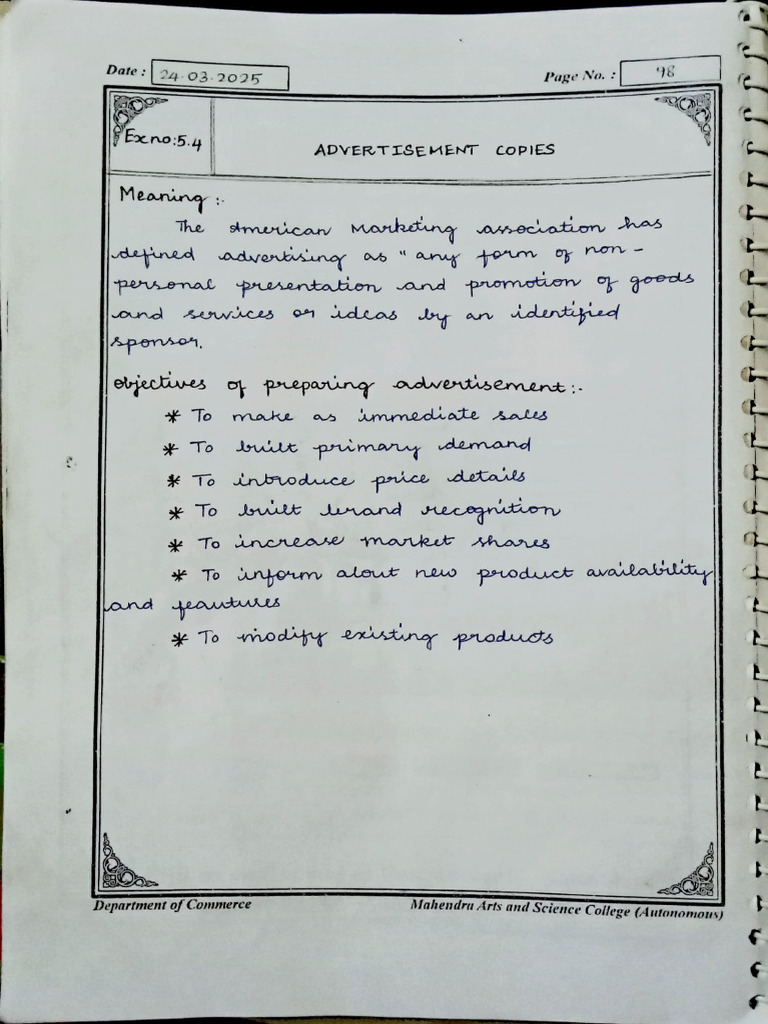 Date : 24.03.2025
Page No. : 98
Ex no: 5.4
ADVERTISEMENT COPIES
Meaning :-
The American Marketing association has
defined advertising as " any form of non-
personal presentation and promotion of goods
and services or ideas by an identified
sponsor.
Objectives of preparing advertisement:-
* To make as immediate sales
* To built primary demand
* To introduce price details
* To built brand recognition
* To increase market shares
* To inform about new product availability
and feautures
* To modify existing products
Department of Commerce
Mahendra Arts and Science College (Autonomous)